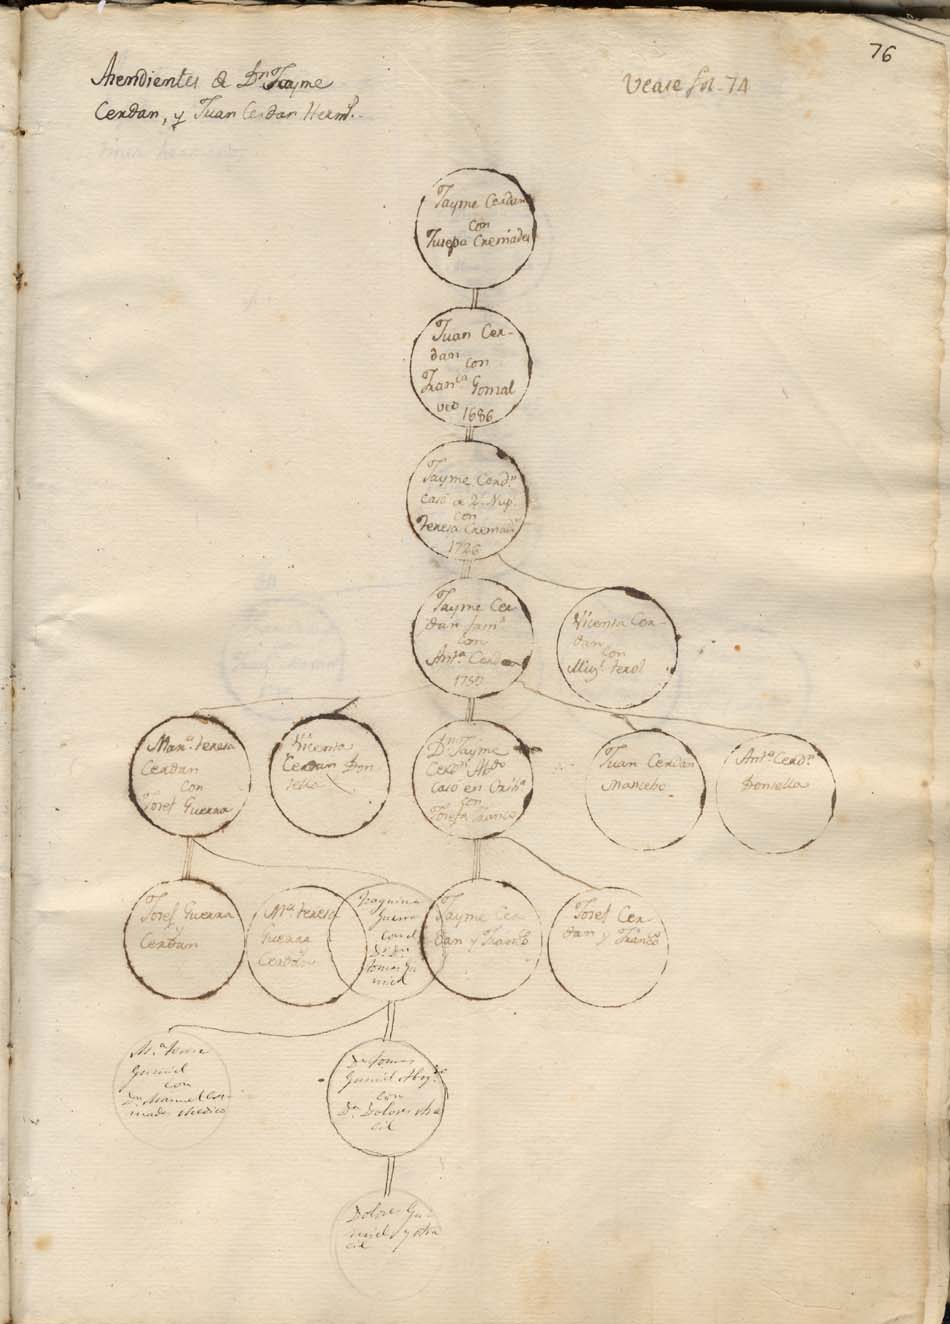 76
Acendientes de Dn. Jayme
Cerdan, y Juan Cerdan Herms.
Vease fol. 74
Jayme Cerdan
con
Jusepa Cremades
Juan Cer-
dan con
Franca. Gomal
vez 1686
Jayme Cerdn.
casó de 2s. Nup.
con
Teresa Cremads.
1726
Jayme Cer
dan
con
Anta. Cerdan
Vicenta Cer-
dan
con
Migl. Terol
Mana. Teresa
Cerdan
con
Josef Guerra
Vicenta
Cerdan Don
sella
Dn. Jayme
Cerdn. Abdo
Casó en
con
Josefa Franco
Juan Cerdan
Mancebo
Anta. Cerdn.
Donsella
Josef Guerra
y
Cerdan
Ma. Teresa
Guerra
y
Cerdan
Joaquina
Guerra
con el
Dr. Dn.
Tomas Gu
miel
Jayme Cer
dan y Franco
Josef Cer
dan y Franco
Ma. Teresa
Gumiel
con
Dn. Manuel Cre-
mades Medico
Dn. Tomas
Gumiel Abogdo
con
Da. Dolores Alca
cil
Dolores Gu-
miel y Alca
cil